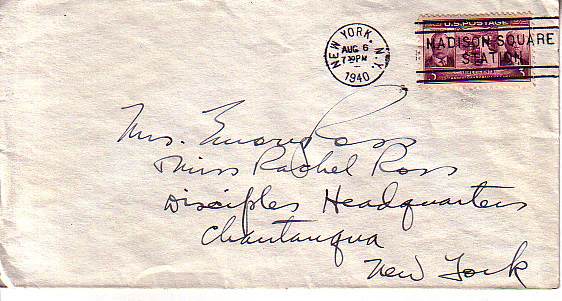 U.S. POSTAGE
NEW YORK, N.Y.
AUG 6
7-PM
1940
MADISON SQUARE
STATION
3 3
Mrs. Emory Ross
Miss Rachel Ross
Disciples Headquarters
Chautauqua
New York